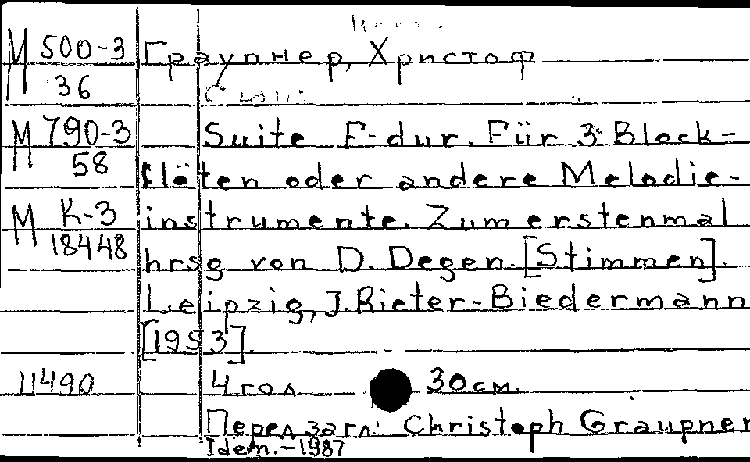 M 500-3 Граупнер, Христоф
36
M 790-3 Suite F-dur. Für 3 Block-
58
flöten oder andere Melodie-
M K-3 instrumente. Zum erstenmal
18448
hrsg von D. Degen. [Stimmen].
Leipzig, J. Rieter-Biedermann
[1953].
11490 4 гол 30 см.
Перед загл: Christoph Graupner
Idem.-1987